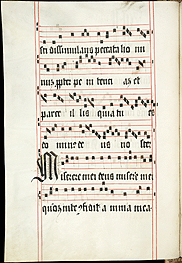 sti dissimulans peccata ho mi
num ppter pe ni tenci am et
parce il lis quia tu es
do minus de us no ster
Miserere mei deus misere me
quoniam in te confidit anima mea